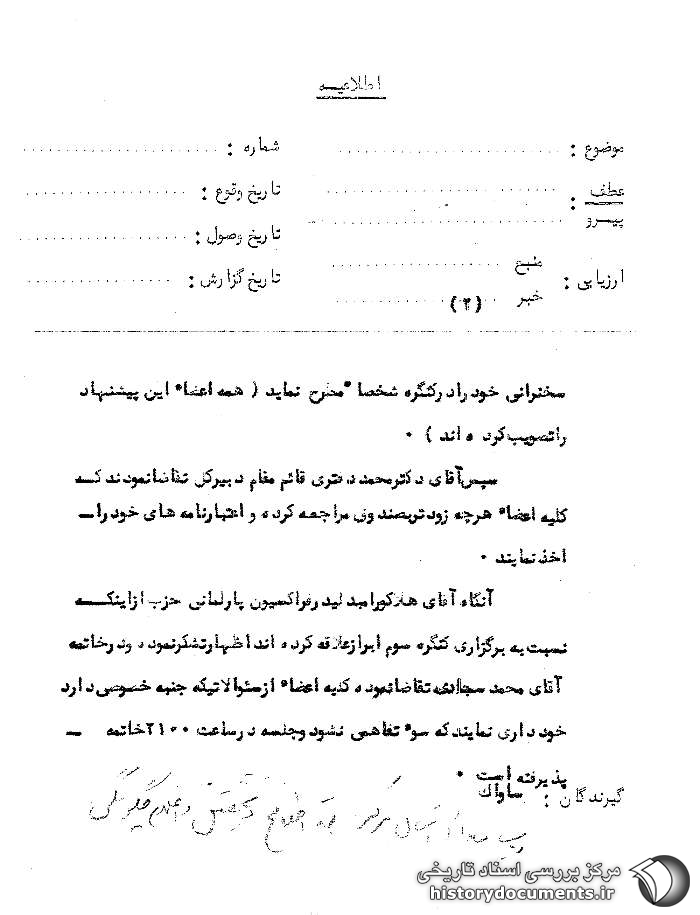 اطلاعیه
موضوع : شماره :
عطف : تاریخ وقوع :
پیرو تاریخ وصول :
ارزیابی : منبع تاریخ گزارش :
خبر (۲)
سخنرانی خود را در کنگره شخصاً مطرح نماید ( همه اعضاء این پیشنهاد
را تصویب کرده اند ) ۰
سپس آقای دکتر محمد دفتری قائم مقام دبیرکل تقاضا نمودند که
کلیه اعضاء هرچه زودتر بصندوق مراجعه کرده و اعتبارنامه های خود را
اخذ نمایند ۰
آنگاه آقای هلاکو رامبد لیدر فراکسیون پارلمانی حزب از اینکه
نسبت به برگزاری کنگره سوم ابراز علاقه کرده اند اظهار تشکر نموده و در خاتمه
آقای محمد تقاضا نموده کلیه اعضاء از سئوالاتیکه جنبه خصوصی دارد
خود داری نمایند که سوء تفاهمی نشود وجلسه در ساعت ۲۱۰۰ خاتمه
پذیرفته است ۰
گیرندگان : ساواک
مرکز بررسی اسناد تاریخی
historydocuments.ir